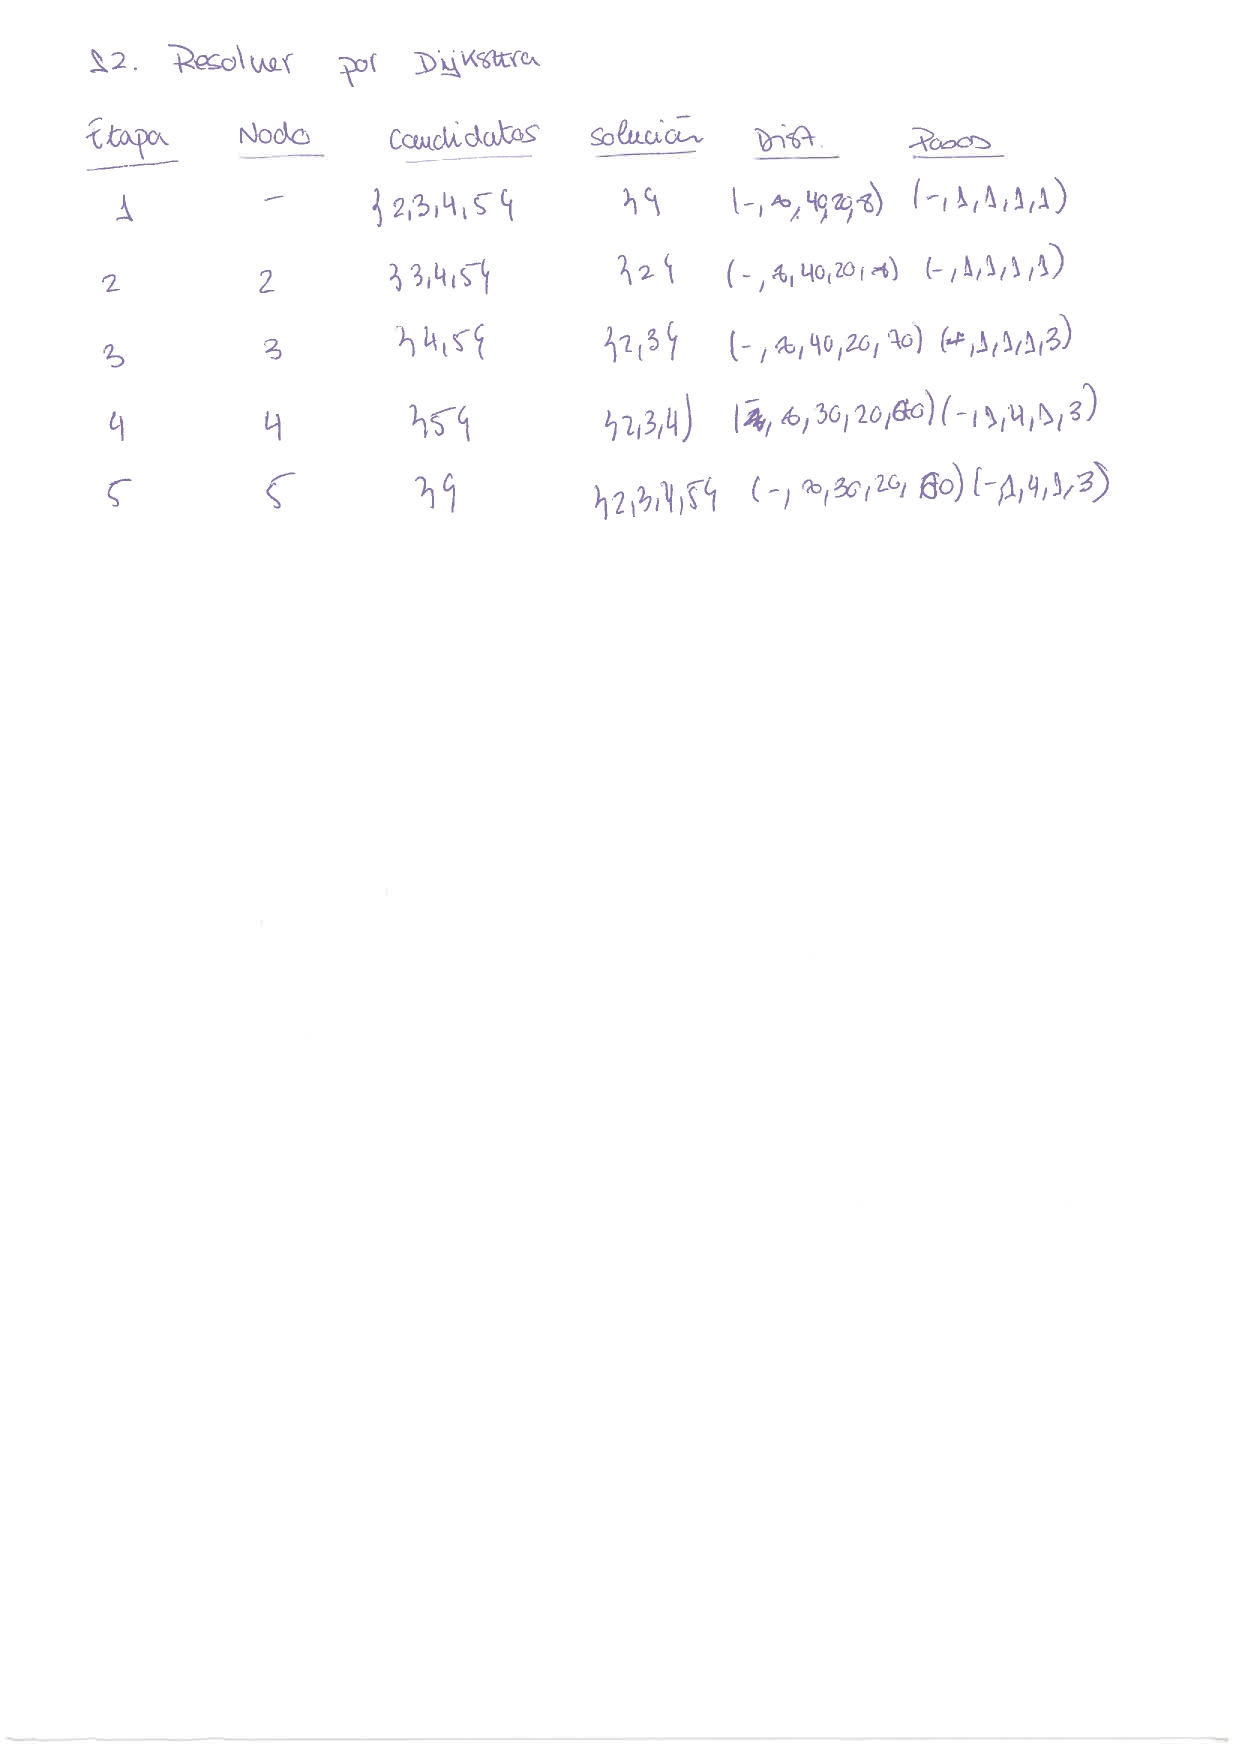 12. Resolver por Dijkstra
Etapa Nodo Candidatos Solución Dist. Pasos
1 - {2,3,4,5} {} (-,∞,40,20,∞) (-,1,1,1,1)
2 2 {3,4,5} {2} (-,∞,40,20,∞) (-,1,1,1,1)
3 3 {4,5} {2,3} (-,∞,40,20,70) (-,1,1,1,3)
4 4 {5} {2,3,4} (-,∞,30,20,60) (-,1,4,1,3)
5 5 {} {2,3,4,5} (-,∞,30,20,60) (-,1,4,1,3)